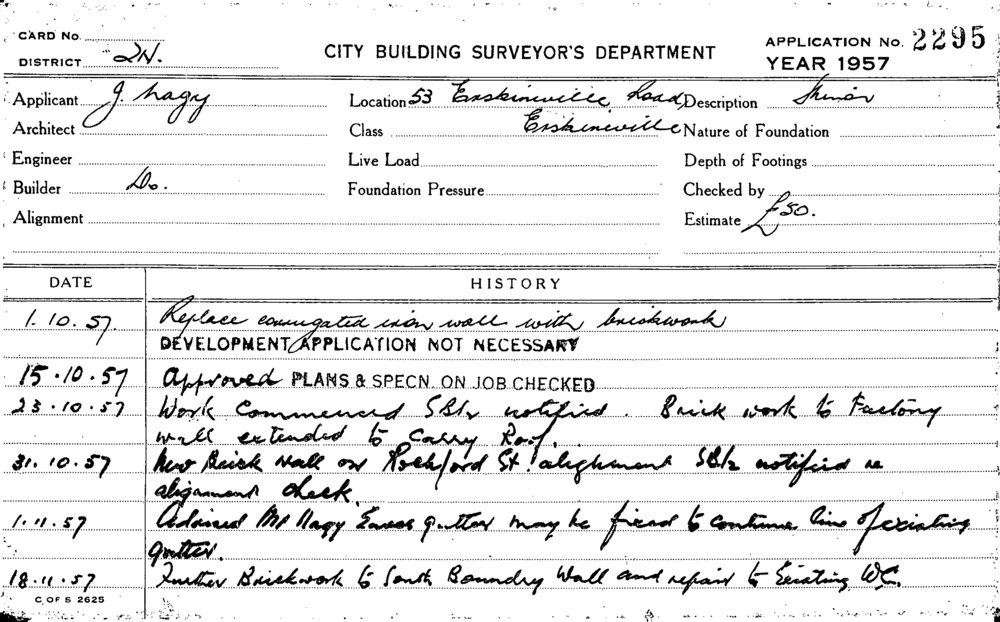 CARD No.
DISTRICT 2N.
CITY BUILDING SURVEYOR'S DEPARTMENT
APPLICATION No. 2295
YEAR 1957
Applicant J. Nagy Location 53 Erskineville Road, Description Minor
Architect Class Erskineville Nature of Foundation
Engineer Live Load Depth of Footings
Builder Do. Foundation Pressure Checked by
Alignment Estimate £50.
DATE HISTORY
1.10.57. Replace corrugated iron wall with brickwork
DEVELOPMENT APPLICATION NOT NECESSARY
15.10.57 Approved PLANS & SPECN. ON JOB CHECKED
23.10.57 Work Commenced notified. Brick work to Factory
wall extended to carry Roof.
31.10.57 New Brick wall on Rochford St. alighment notified re
alignment check.
1.11.57 Advised Mr Nagy Eaves gutter may be fixed to continue line of existing
gutter.
18.11.57 Further Brickwork to South Boundry Wall and repair to Existing W.C.
C OF S 2625